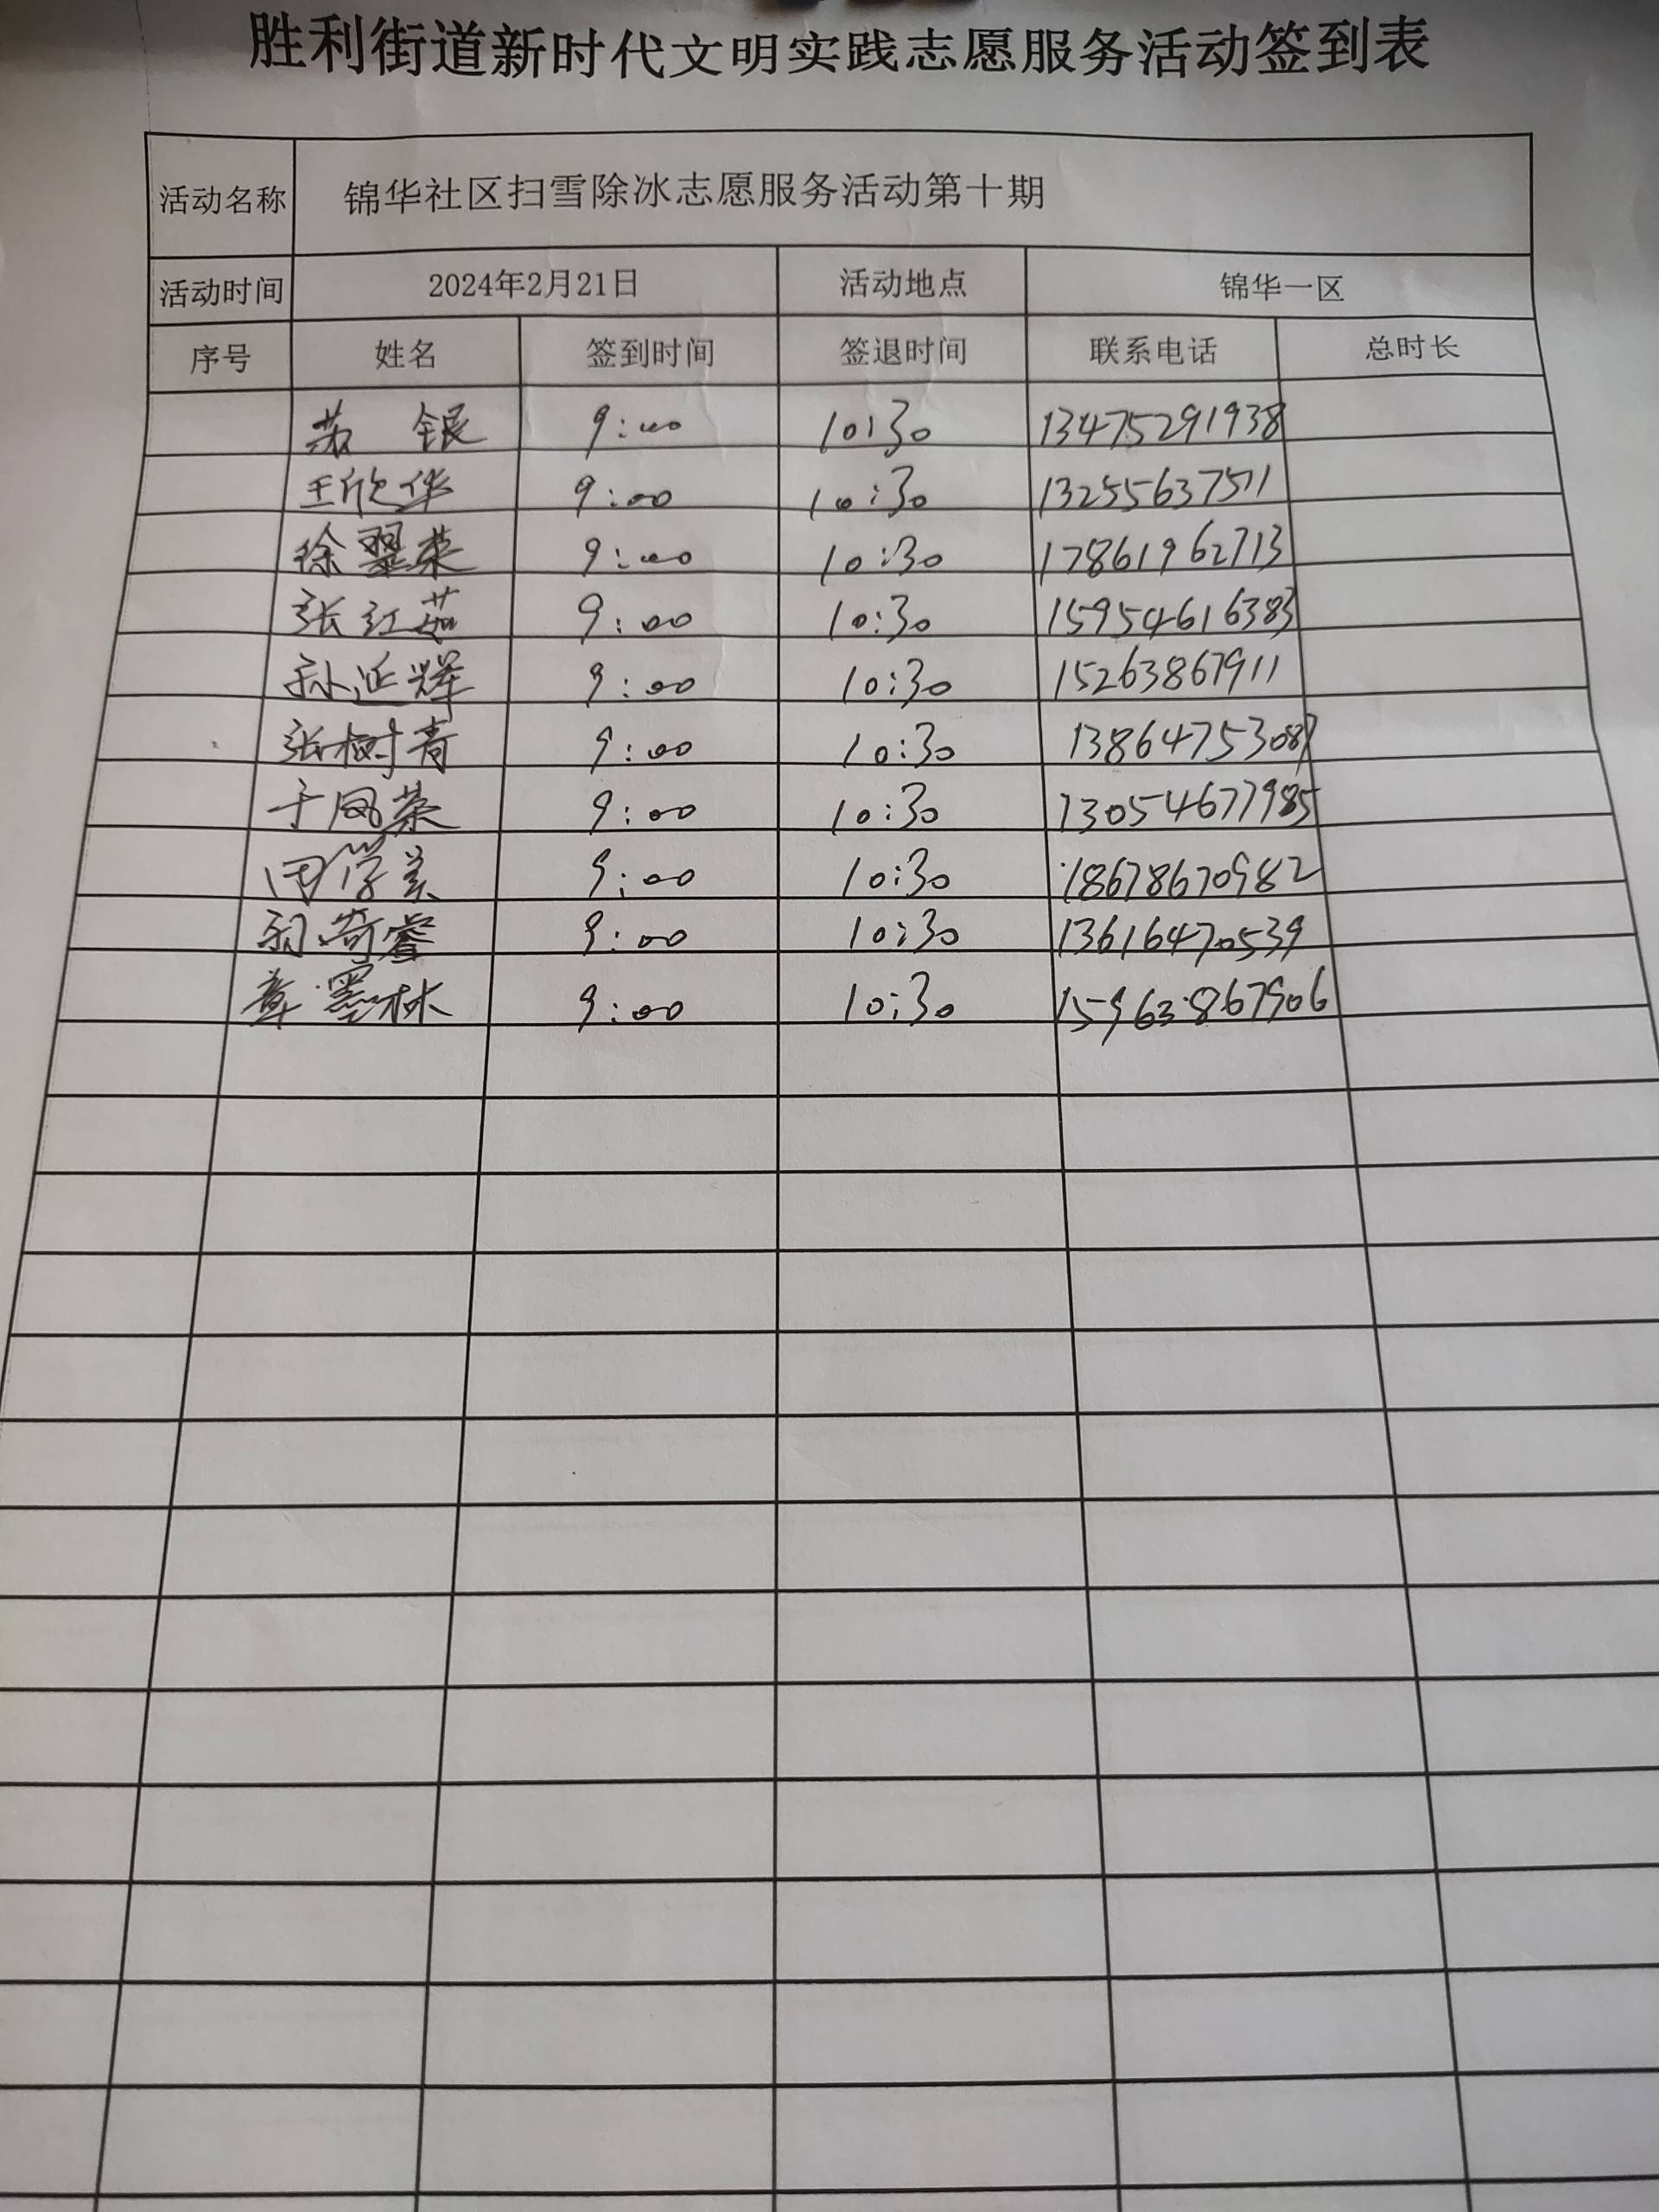 胜利街道新时代文明实践志愿服务活动签到表
活动名称 锦华社区扫雪除冰志愿服务活动第十期
活动时间 2024年2月21日 活动地点 锦华一区
序号 姓名 签到时间 签退时间 联系电话 总时长
苏银 9:00 10:30 13475291938
王欣华 9:00 10:30 13255637511
徐翠荣 9:00 10:30 17861962713
张红茹 9:00 10:30 15954616383
孙延辉 9:00 10:30 15263867911
张树青 9:00 10:30 13864753087
于凤荣 9:00 10:30 13054677985
田学美 9:00 10:30 18678670982
9:00 10:30 13616470539
章墨林 9:00 10:30 15963867906